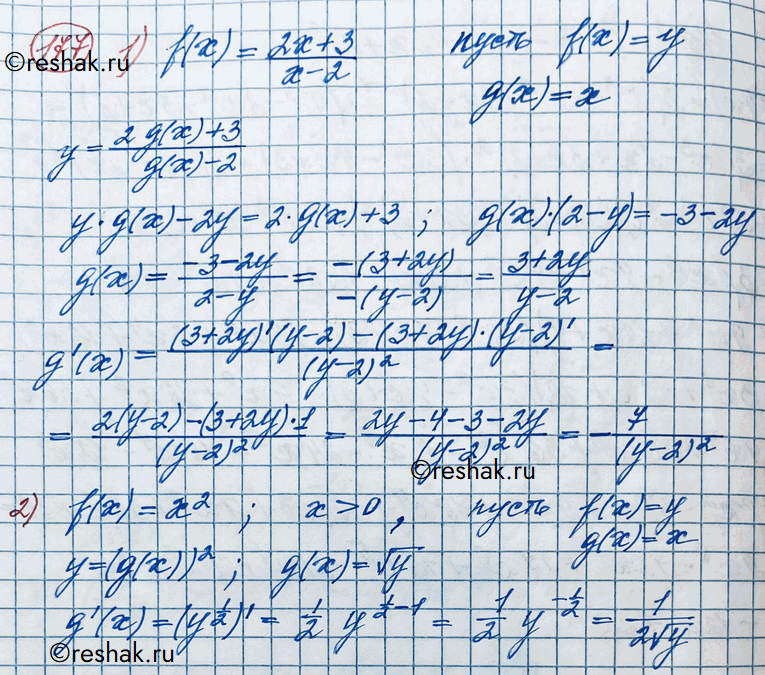 177 1) f(x) = (2x+3)/(x-2) пусть f(x) = y
©reshak.ru
g(x) = x
©reshak.ru
y = (2 g(x)+3)/(g(x)-2)
y·g(x)-2y = 2·g(x)+3 ; g(x)·(2-y) = -3-2y
g(x) = (-3-2y)/(2-y) = (-(3+2y))/(-(y-2)) = (3+2y)/(y-2)
g'(x) = ((3+2y)'(y-2)-(3+2y)·(y-2)')/((y-2)²) =
= (2(y-2)-(3+2y)·1)/((y-2)²) = (2y-4-3-2y)/((y-2)²) = -7/((y-2)²)
©reshak.ru
2) f(x) = x² ; x>0, пусть f(x) = y
g(x) = x
y = (g(x))² ; g(x) = √y
g'(x) = (y^(1/2))' = 1/2 y^(1/2-1) = 1/2 y^(-1/2) = 1/(2√y)
©reshak.ru